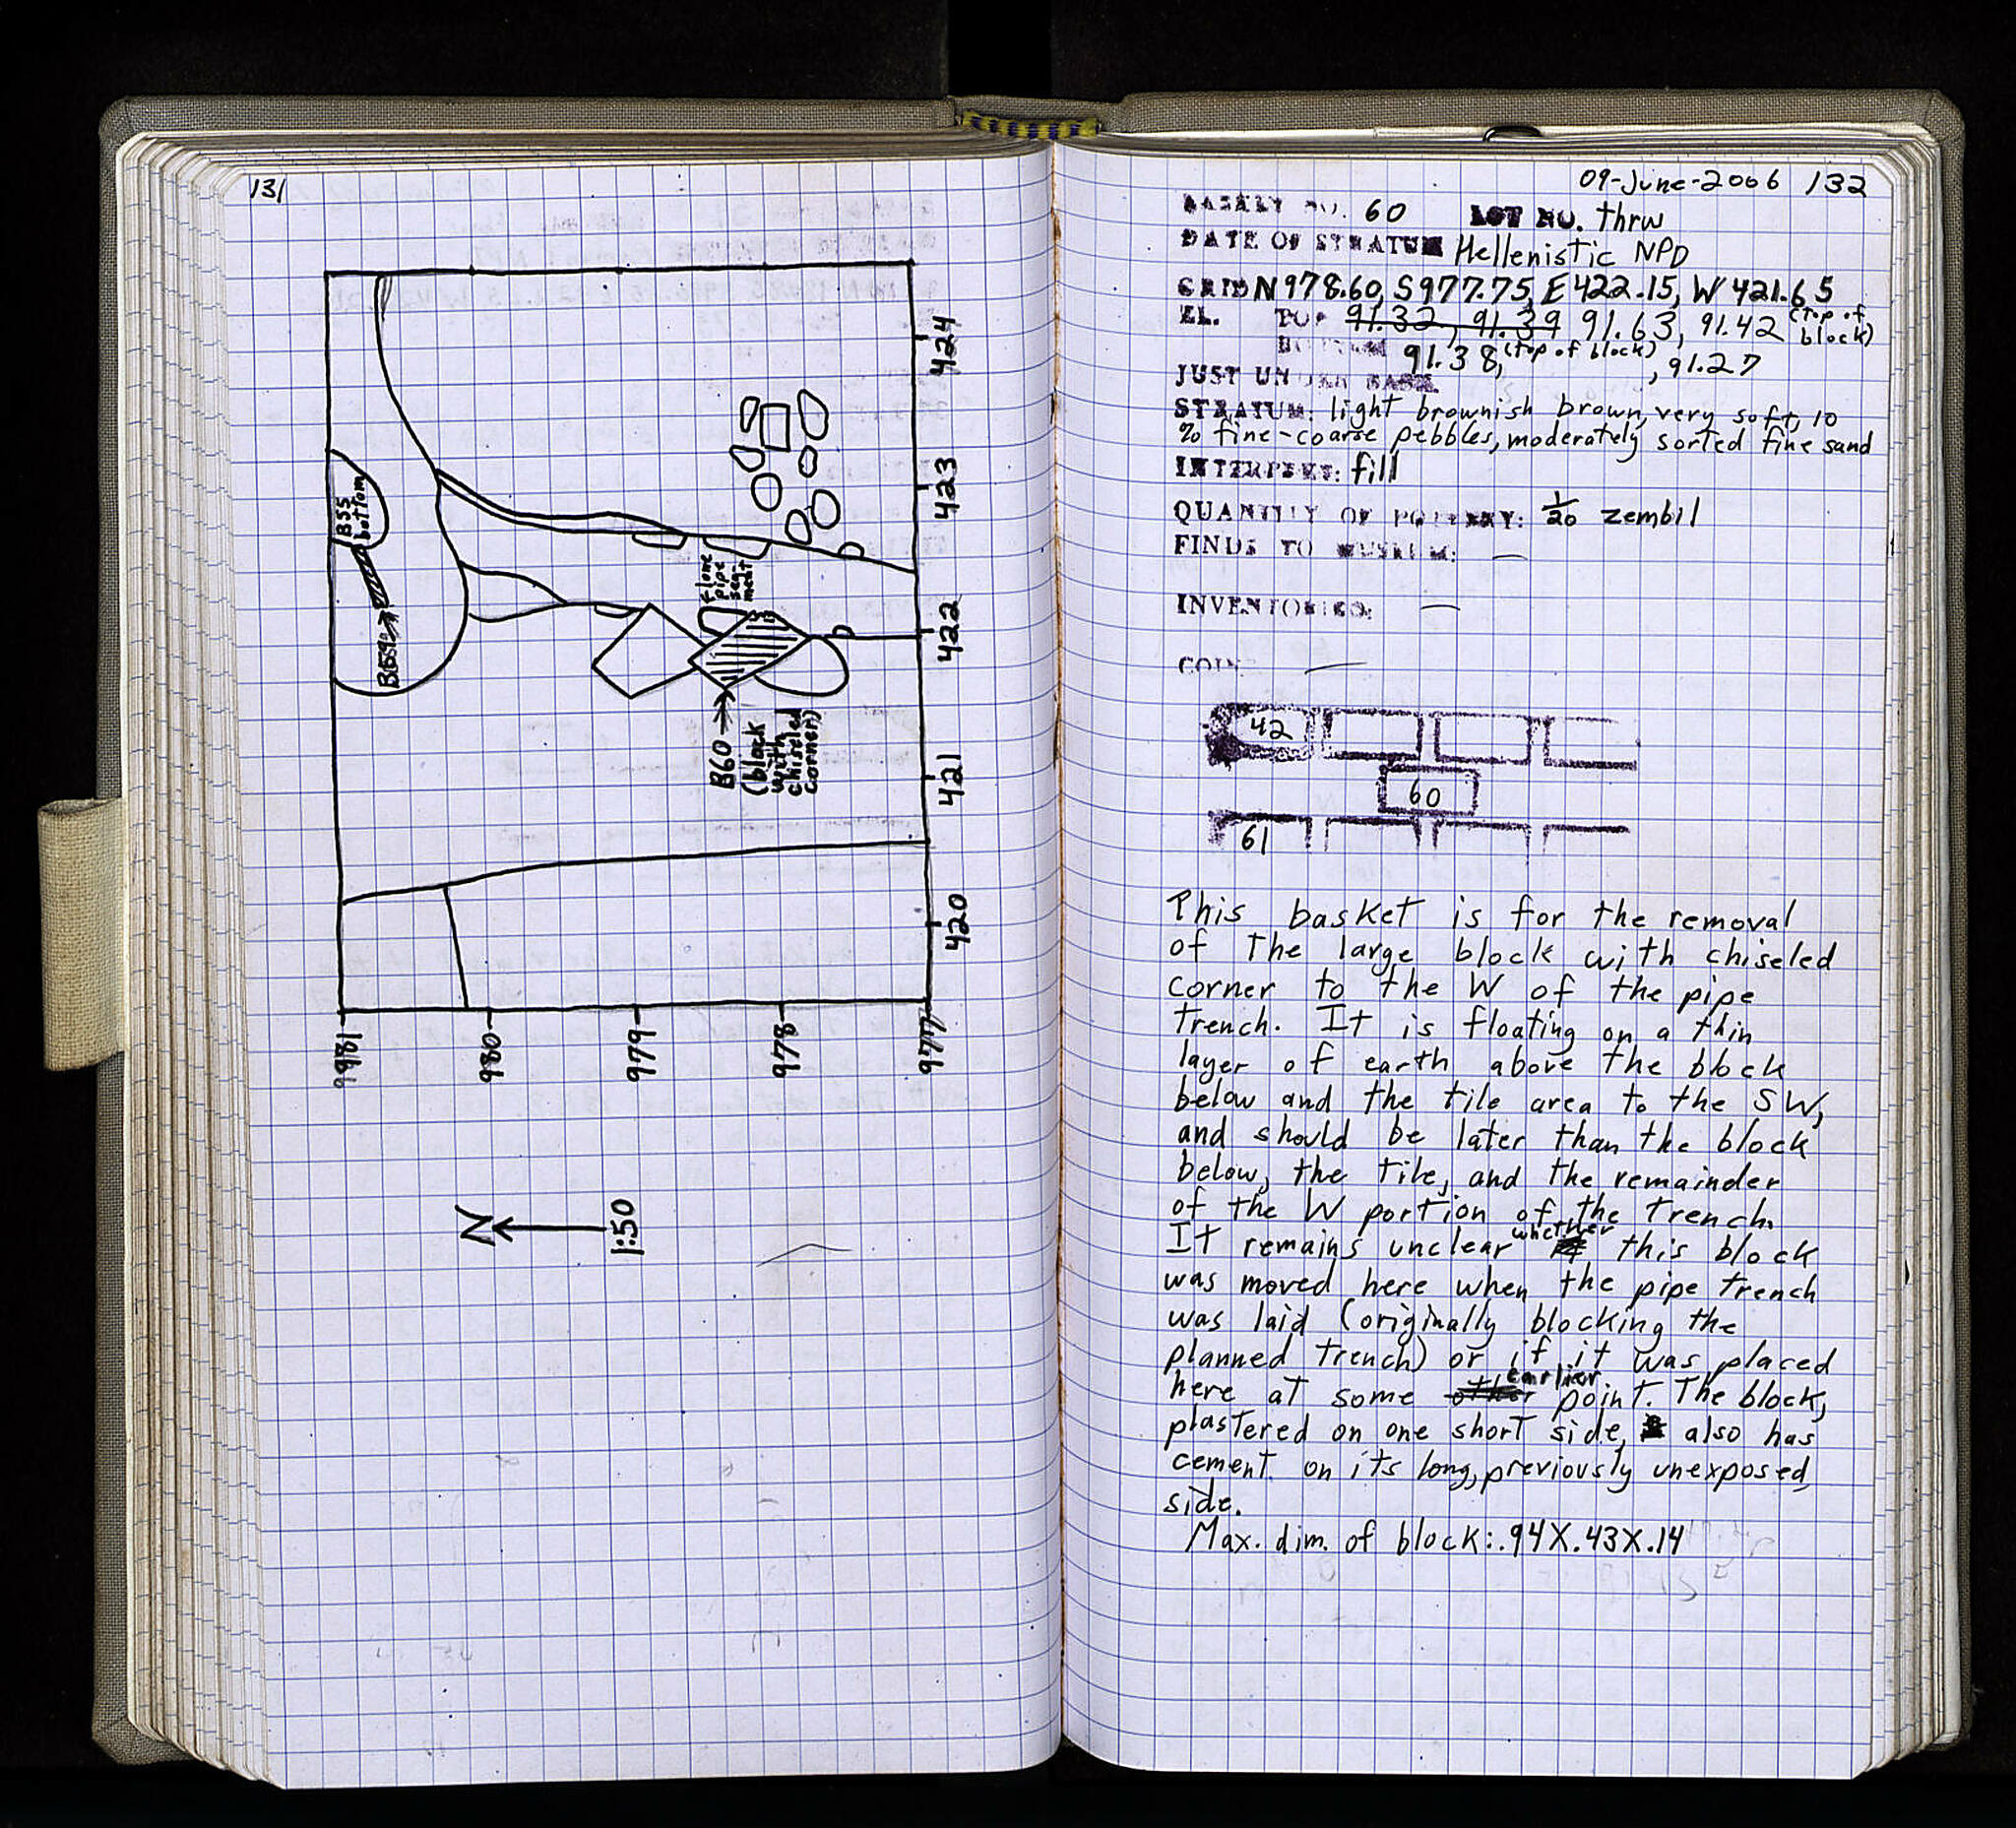 131
424
423
422
421
420
981
980
979
978
977
B55
bottom
B59
1 lone
pipe
seg-
ment
B60
(block
with
chiseled
corner)
N
1:50
09-June-2006 132
BASKET NO. 60 LOT NO. thrw
DATE OF STRATUM Hellenistic NPD
GRID N978.60, S977.75, E422.15, W421.65
EL. TOP 91.32, 91.39 91.63, 91.42 (top of block)
BOTTOM 91.38, (top of block), 91.27
JUST UNDER BASK.
STRATUM: light brownish brown, very soft, 10
% fine-coarse pebbles, moderately sorted fine sand
INTERPRET: fill
QUANTITY OF POTTERY: 1/20 zembil
FINDS TO MUSEUM: —
INVENTORIED: —
COIN: —
42
60
61
This basket is for the removal
of the large block with chiseled
corner to the W of the pipe
trench. It is floating on a thin
layer of earth above the block
below and the tile area to the SW,
and should be later than the block
below, the tile, and the remainder
of the W portion of the trench.
It remains unclear whether this block
was moved here when the pipe trench
was laid (originally blocking the
planned trench) or if it was placed
here at some other earlier point. The block,
plastered on one short side, also has
cement on its long, previously unexposed
side.
Max. dim. of block: .94X.43X.14